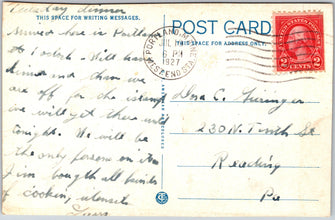 Tuesday dinner
THIS SPACE FOR WRITING MESSAGES.
POST CARD
THIS SPACE FOR ADDRESS ONLY.
PORTLAND, ME.
6 PM
1927
WEST END STA.
2 CENTS 2
here in Portland
at 1 oclock. Will have
dinner and then we
are off for the island
we will get there until
tonight. We will be
the only persons on
I'm bought all kinds
of cooking utensils
230 N. Tenth St
Reading
Pa